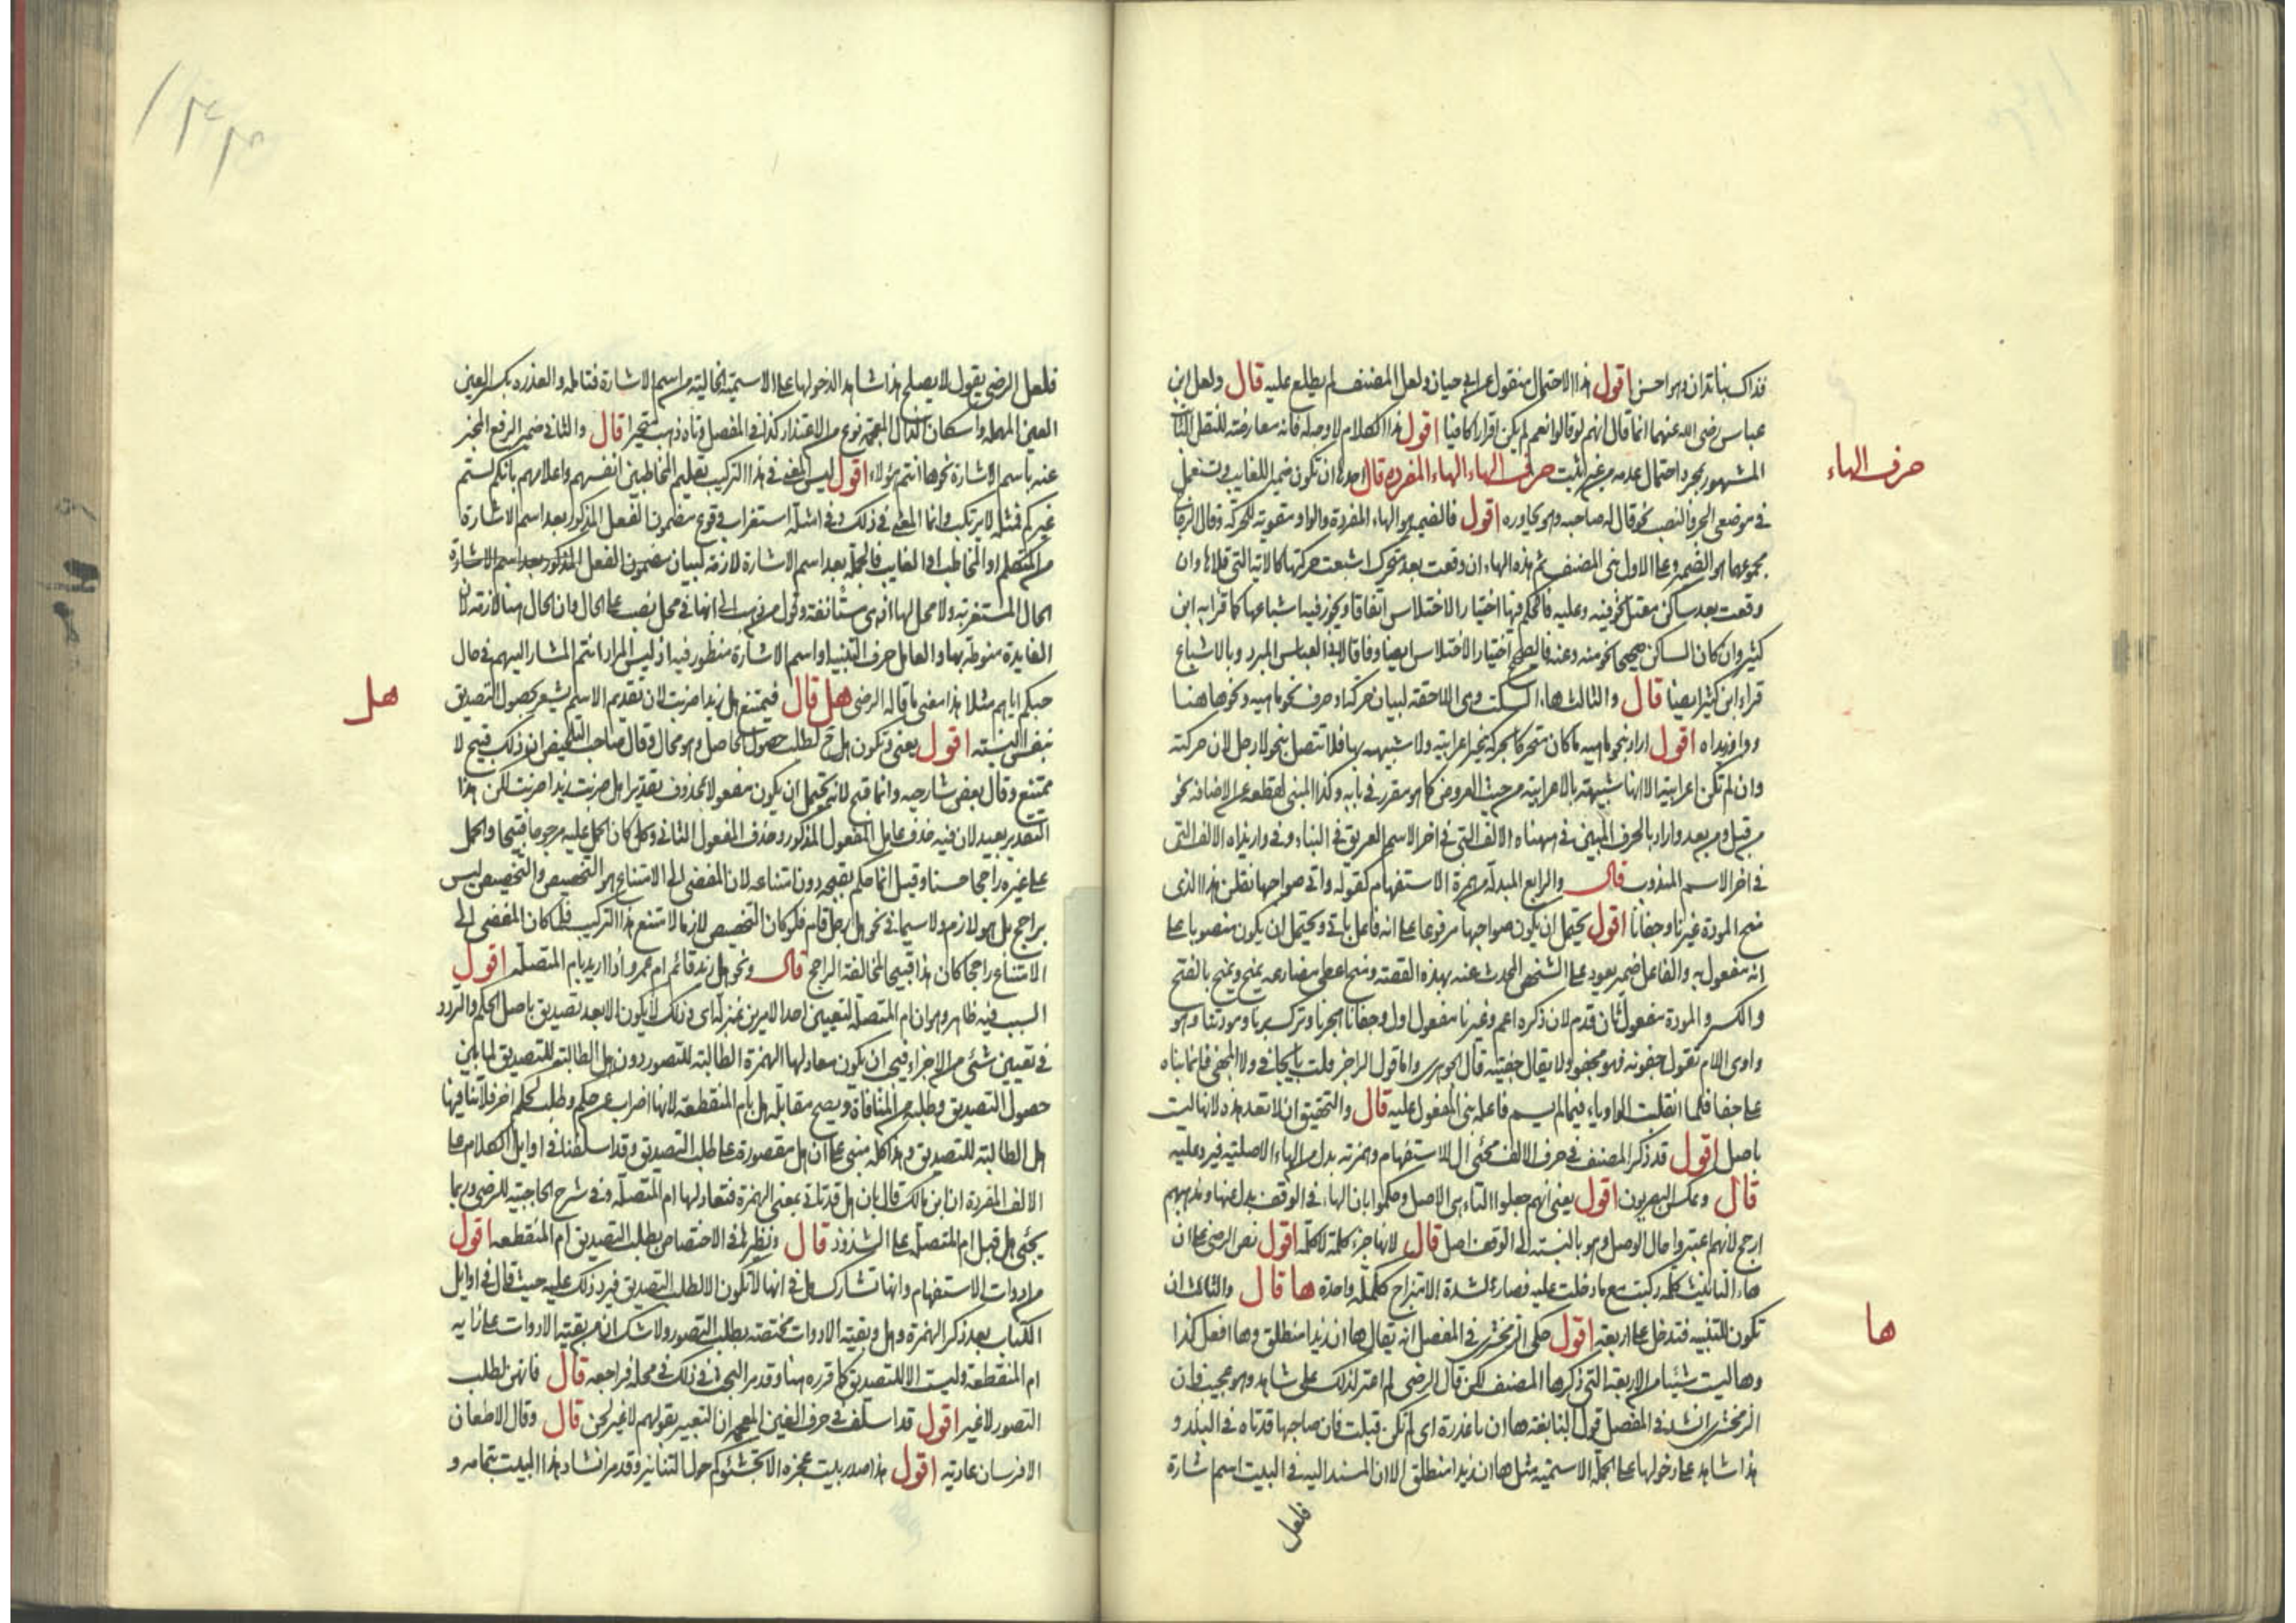 فذاك بناتران وهو احسن اقول هذا الاحتمال منقول عن ابي حيان ولعل المصنف لم يطلع عليه قال ولعل ابن
عباس رضي الله عنهما انما قال انهم لو قالوا نعم لم يكن اقرارا كافيا اقول هذا الكلام لا وجه له فانه معارضته للنقل
المشهور بمجرد احتمال عدمه من غير تثبت حرف الهاء الهاء المفرده قال احدها ان تكون ضميرا للغايب وتستعمل
في موضعي الجر والنصب نحو قال له صاحبه وهو يحاوره اقول فالضمير هو الهاء المفردة والواو مقوية للحركة وقال الزجاج
مجموعهما هو الضمير وعلى الاول بنى المصنف ثم هذه الهاء ان وقعت بعد متحرك اشبعت حركتها كالاية التي تلاها وان
وقعت بعد ساكن معتل نحو فيه وعليه فالحكم فيها اختيار الاختلاس اتفاقا ويجوز فيها اشباعها كما قرا به ابن
كثير وان كان الساكن صحيحا نحو منه وعنه فالاصح اختيار الاختلاس ايضا وفاقا لابي العباس المبرد وبالاشباع
قراءة ابن كثير ايضا قال والثالث هاء السكت وهي اللاحقة لبيان حركة او حرف نحو ماهيه ونحو هاهنا
ووازيداه اقول اراد بنحو ماهيه ما كان متحركا بحركة غير اعرابية ولا شبيهه بها فلا تتصل بنحو لا رجل لان حركته
وان لم تكن اعرابية الا انها شبيهة بالاعرابية من حيث العروض كما هو مقرر في بابه وكذا المبني لقطعه عن الاضافة نحو
من قبل ومن بعد واراد بالحرف المبين في ههناه الالف التي في اخر الاسم العريق في البناء وفي وازيداه الالف التي
في اخر الاسم المندوب قال والرابع المبدلة من همزة الاستفهام كقوله واتى صواحبها فقلن هذا الذي
منح المودة غيرنا وجفانا اقول يحتمل ان يكون صواحبها مرفوعا على انه فاعل باتى ويحتمل ان يكون منصوبا على
انه مفعول به والفاعل ضمير يعود على الشخص المحدث عنه بهذه القصة ومنح اعطى مضارعه يمنح ويمنح بالفتح
والكسر والمودة مفعول ثان قدم لان ذكره اهم وغيرنا مفعول اول وجفانا هجرنا وترك برنا ومودتنا وهو
واوي اللام تقول جفوته فهو مجفو ولا يقال جفيته قال الجوهري واما قول الراجز فلت بالجافي ولا المجفي فانما بناه
على جفا فلما انقلبت الواو ياء فيما لم يسم فاعله بنى المفعول عليه قال والتحقيق ان لا تعد هذه لانها ليست
باصل اقول قد ذكر المصنف في حرف الالف مجئ ال للاستفهام وهمزته بدل من الهاء الاصلية فيرد عليه
قال وعكس البصريون اقول يعني انهم جعلوا التاء هي الاصل وحكموا بان الهاء في الوقف بدل عنها ومذهبهم
ارجح لانهم اعتبروا حال الوصل وهو بالنسبة الى الوقف اصل قال لانها جزء كلمة لا كلمة اقول نص الرضي على ان
هاء التانيث كلمة ركبت مع ما دخلت عليه فصارتا لشدة الامتزاج ككلمة واحدة ها قال والثالث ان
تكون للتنبيه فتدخل على اربعة اقول حكى الزمخشري في المفصل انه يقال ها ان زيدا منطلق وها افعل كذا
وهاليت شيئا من الاربعة التي ذكرها المصنف لكن قال الرضي لم اعثر لذلك على شاهد وهو عجيب فان
الزمخشري انشد في المفصل قول النابغة ها ان ذا عذرة ان لم تكن قبلت فان صاحبها قد تاه في البلد و
هذا شاهد على دخولها على الجملة الاسمية مثل ها ان زيدا منطلق الا ان المسند اليه في البيت اسم اشارة
فلعل
حرف الهاء
ها
فلعل الرضي يقول لا يصلح هذا شاهدا لدخولها على الاسمية الخالية من اسم الاشارة فتامله والعذرة بكسر العين
العين المهملة واسكان الذال المعجمة نوع من الاعتذار كذا في المفصل وتاه ذهب متحيرا قال والثاني ضمير الرفع المخبر
عنه باسم الاشارة نحو ها انتم هؤلاء اقول ليس المعنى في هذا التركيب تعليم المخاطبين انفسهم واعلامهم بانكم لستم
غيركم فمثله لا يرتكب وانما المعنى في ذلك وفي امثله استغراب وقوع مضمون الفعل المذكور بعد اسم الاشارة
من المتكلم او المخاطب او الغايب فالجملة بعد اسم الاشارة لازمة لبيان مضمون الفعل المذكور بعد اسم الاشارة
الحال المستغربة ولا محل لها اذ هي مستأنفة وقول من ذهب الى انها في محل نصب على الحال وان الحال هنا لازمة لان
الفايدة منوطة بها والعامل حرف التنبيه او اسم الاشارة منظور فيه اذ ليس المراد انتم المشار اليهم في حال
حبكم اياهم مثلا هذا معنى ما قاله الرضي هل قال فيمتنع هل زيدا ضربت لان تقديم الاسم يشعر بحصول التصديق
بنفس النسبة اقول يعني وتكون هل ح لطلب حصول الحاصل وهو محال وقال صاحب التلخيص ان ذلك قبيح لا
ممتنع وقال بعض شارحيه وانما قبح لانه يحتمل ان يكون مفعولا لمحذوف بتقدير هل ضربت زيدا ضربت لكن هذا
التقدير بعيد لان فيه حذف عامل المفعول المذكور وحذف المفعول الثاني وكل كان الحمل عليه مرجوحا قبيحا والحمل
على غيره راجحا حسنا وقيل انما حكم بقبحه دون امتناعه لان المفضي الى الامتناع هو التخصيص والتخصيص ليس
براجح بل هو لازم ولا سيما في نحو هل رجل قام فلو كان التخصيص لازما لامتنع هذا التركيب فلما كان المفضي الى
الامتناع راجحا كان هذا قبيحا لمخالفة الراجح قال ونحو هل زيد قائم ام عمرو اذا اريد بام المتصلة اقول
السبب فيه ظاهر وهو ان ام المتصلة لتعيين احد الامرين بمنزلة اي وذلك لا يكون الا بعد تصديق باصل الحكم والتردد
في تعيين شئ من الاجزاء فيجب ان يكون معادلها الهمزة الطالبة للتصور دون هل الطالبة للتصديق لما بين
حصول التصديق وطلبه من المنافاة ويصح مقابلة هل بام المنقطعة لانها اضراب عن حكم وطلب لحكم اخر فلا تنافيها
هل الطالبة للتصديق وهذا كله مبني على ان هل مقصورة على طلب التصديق وقد اسلفنا في اوايل الكلام على
الالف المفردة ان ابن مالك قال بان هل قد تاتي بمعنى الهمزة فتعادلها ام المتصلة وفي شرح الحاجبية للرضي وربما
يجئ هل قبل ام المتصلة على الشذوذ قال ونظيرها في الاختصاص بطلب التصديق ام المنقطعة اقول
من ادوات الاستفهام وانها تشارك هل في انها لا تكون الا لطلب التصديق فيرد ذلك عليه حيث قال في اوايل
الكتاب بعد ذكر الهمزة وهل وبقية الادوات مختصة بطلب التصور ولا شك ان من بقية الادوات على رايه
ام المنقطعة وليست الا للتصديق كما قرره هنا وقد مر البحث في ذلك في محله فراجعه قال فانهن لطلب
التصور لا غير اقول قد اسلف في حرف الغين المعجمة ان التعبير بقولهم لا غير لحن قال وقال الا طعان
الا فرسان عادية اقول هذا صدر بيت عجزه الا تجشئوكم حول التنانير وقد مر انشاد هذا البيت بتمامه و
هل